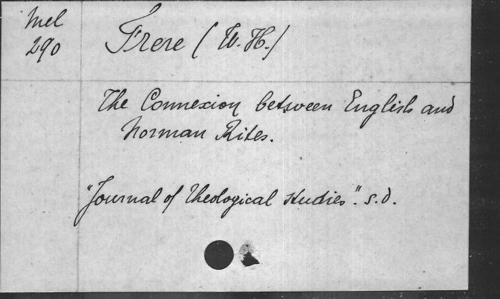 Mel
290
Frere (W. H.)
The Connexion between English and
Norman Rites.
"Journal of Theological Studies". s.d.